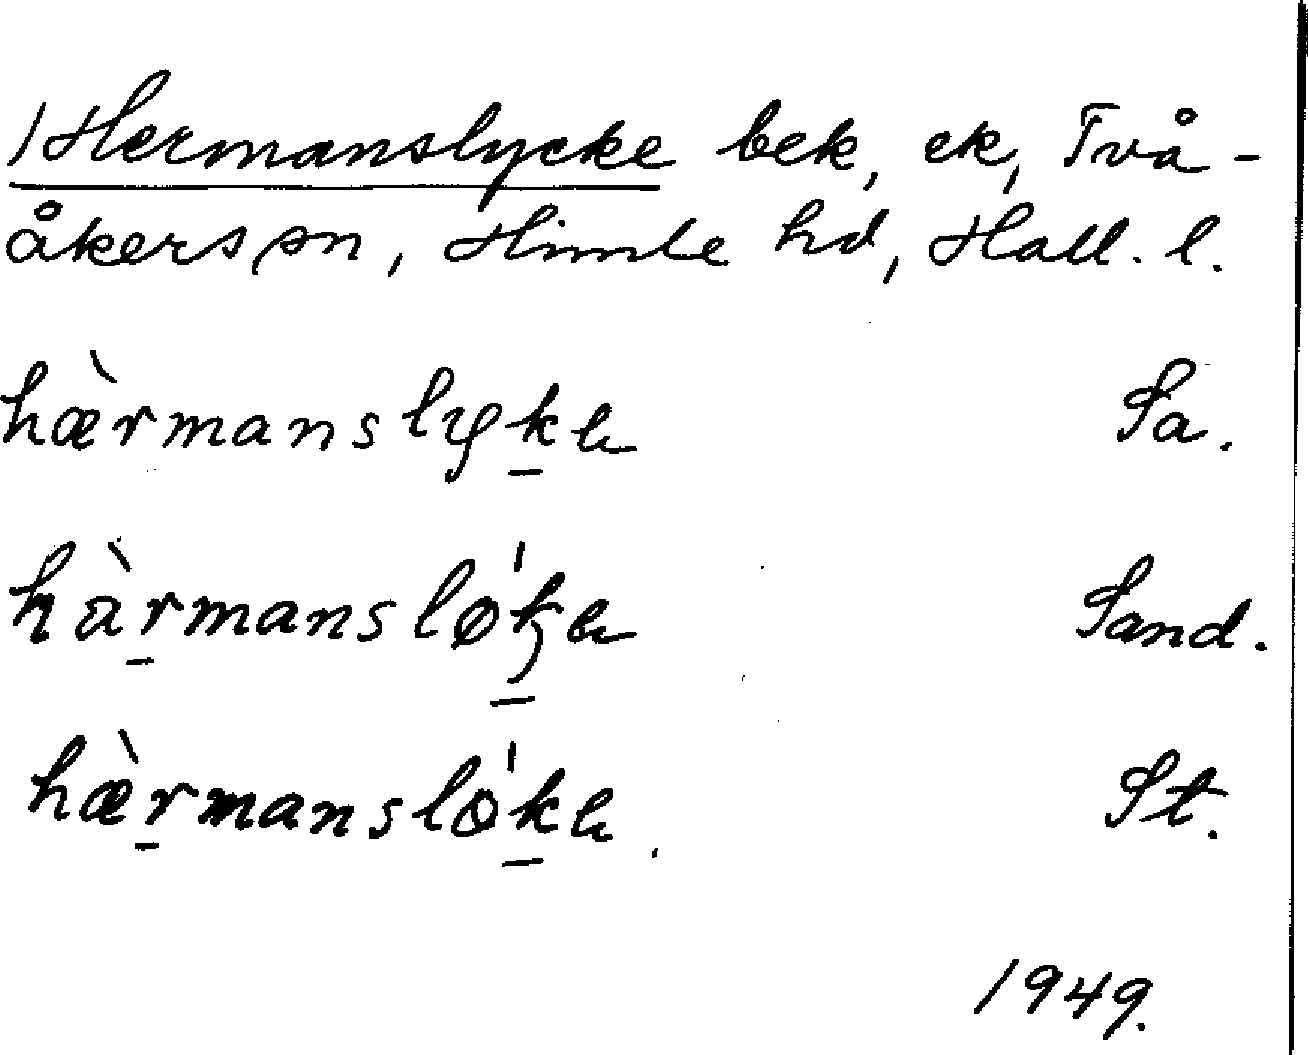 /Hermanslycke bek, ek, Två-
åkers sn, Himle hd, Hall. l.
hæ̀rmanslyk̲e Sa.
hàr̲manslø'k̲e Sand.
hæ̀r̲manslö'k̲e. St.
1949.